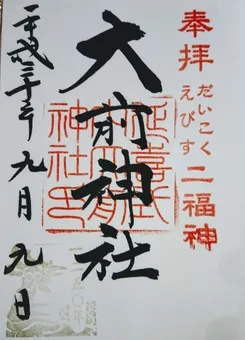 奉拝
だいこく
えびす
二福神
大前神社
延喜式
神社印
平成三十年
九月九日